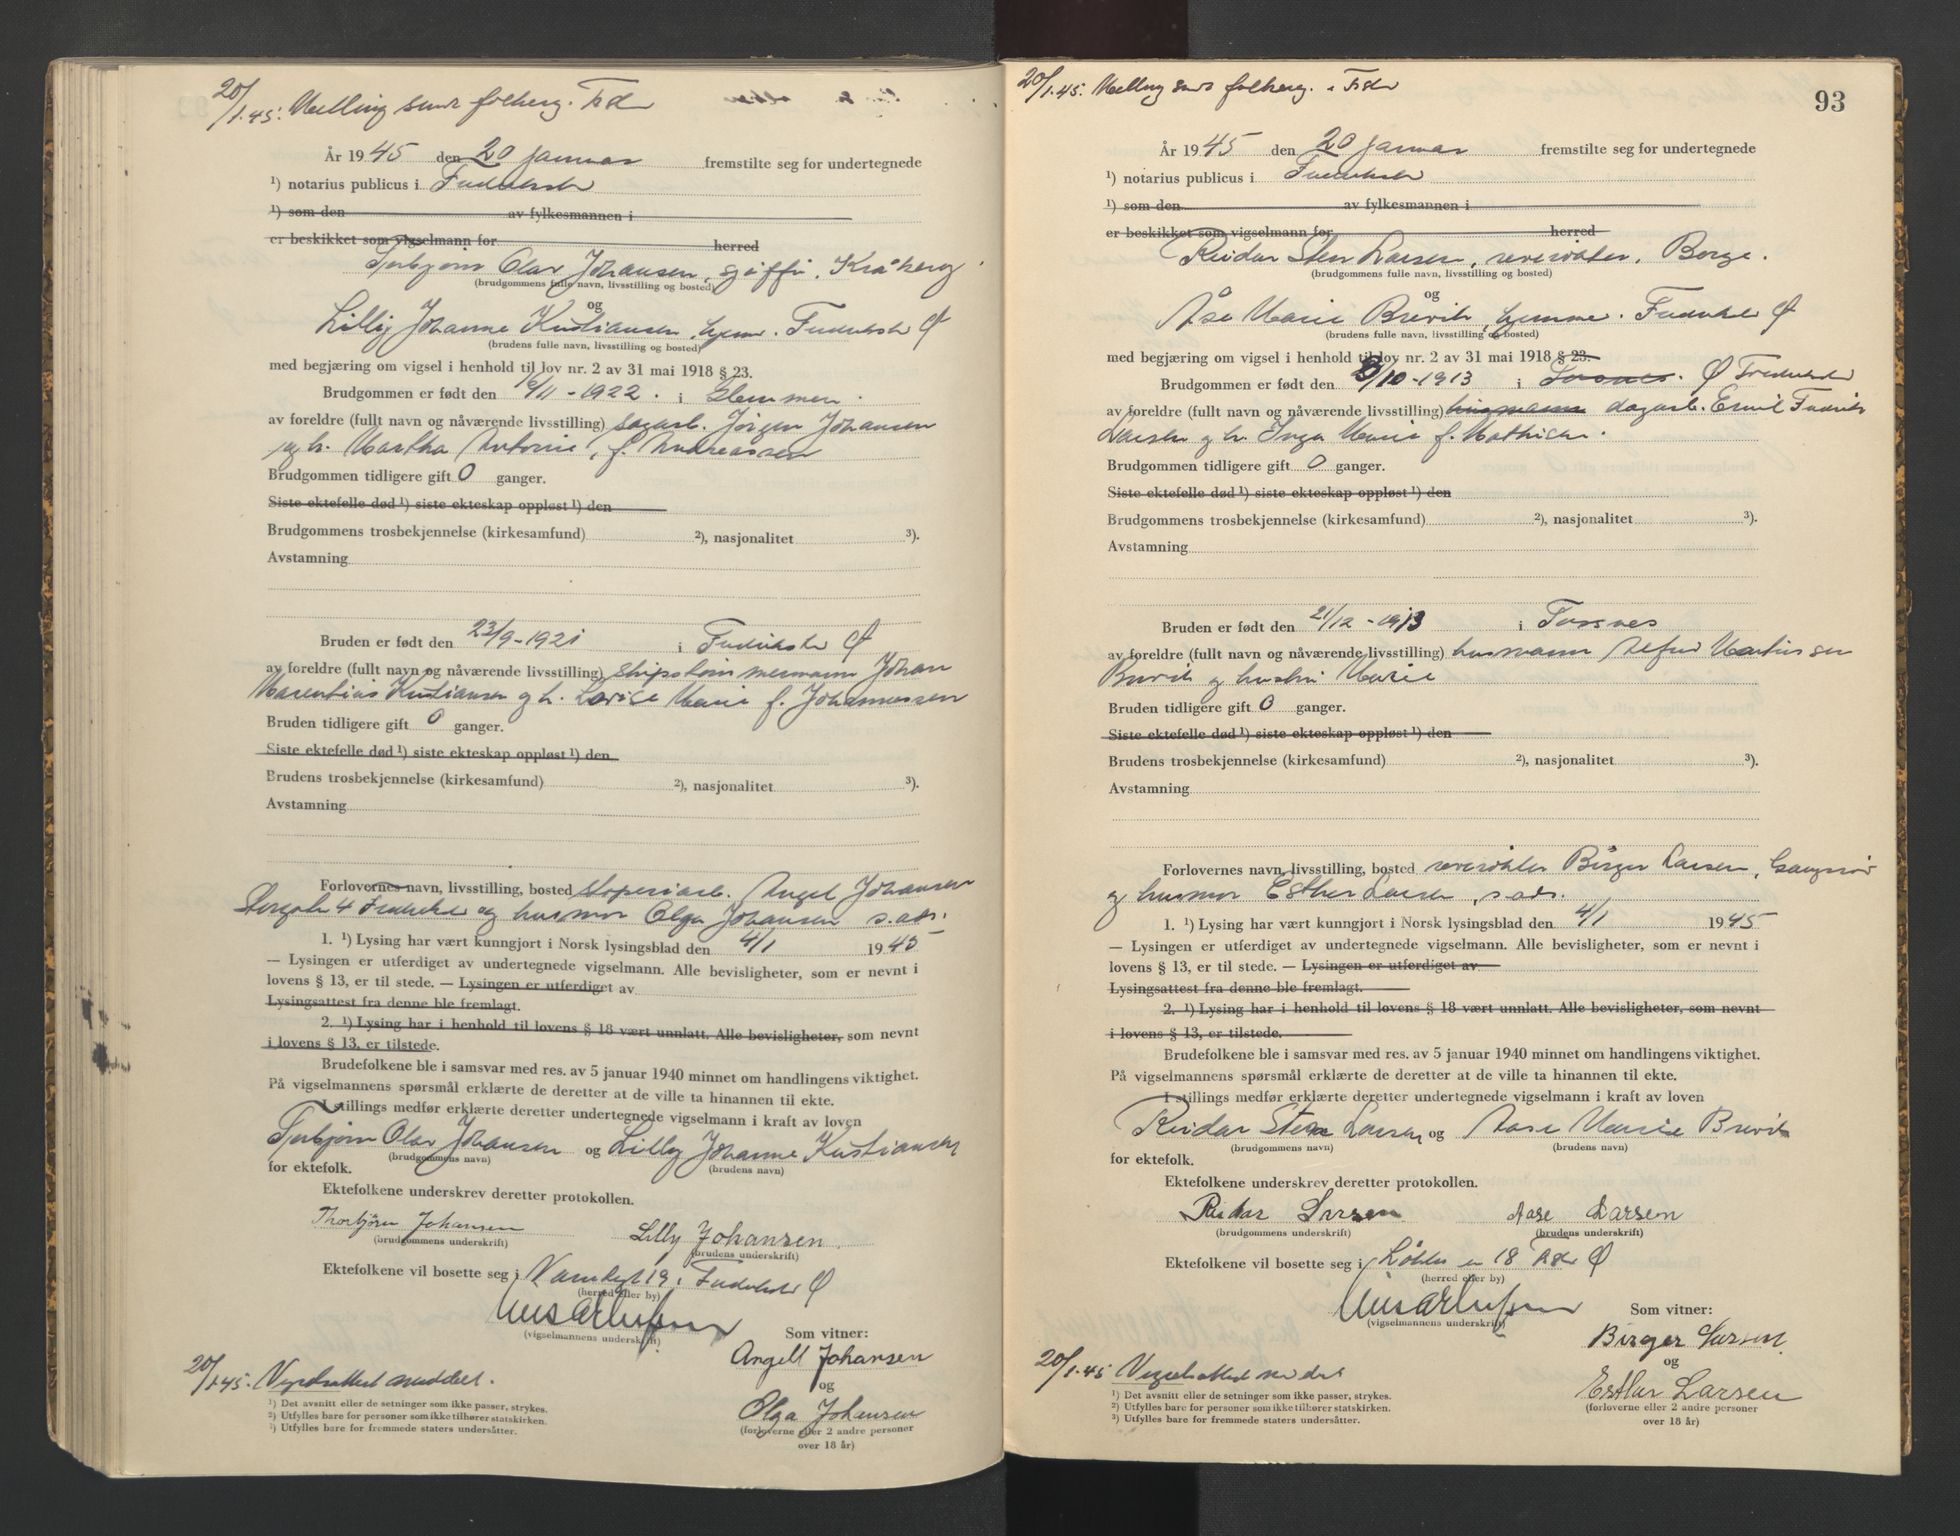 20/1.45. Melding sendt folkereg. Fr.st.
År 1945 den 20 januar fremstilte seg for undertegnede
¹) notarius publicus i Fredrikstad
¹) som den av fylkesmannen i
er beskikket som vigselmann for herred
Torbjørn Olav Johansen, sjåfør, Kråkerøy
(brudgommens fulle navn, livsstilling og bosted)
og
Lilly Johanne Kristiansen, hjem. Fredrikst. Ø
(brudens fulle navn, livsstilling og bosted)
med begjæring om vigsel i henhold til lov nr. 2 av 31 mai 1918 § 23.
Brudgommen er født den 16/11-1922. i Glemmen.
av foreldre (fullt navn og nåværende livsstilling) sagarb. Jørgen Johansen
og h. Martha Antonie, f. Andreassen
Brudgommen tidligere gift 0 ganger.
Siste ektefelle død ¹) siste ekteskap oppløst ¹) den
Brudgommens trosbekjennelse (kirkesamfund) ²), nasjonalitet ³).
Avstamning
Bruden er født den 23/9-1921 i Fredrikst. Ø
av foreldre (fullt navn og nåværende livsstilling) skipstømmermann Johan
Marentius Kristiansen og h. Lovise Marie f. Johannessen
Bruden tidligere gift 0 ganger.
Siste ektefelle død ¹) siste ekteskap oppløst ¹) den
Brudens trosbekjennelse (kirkesamfund) ²), nasjonalitet ³).
Avstamning
Forlovernes navn, livsstilling, bosted støperiarb. Angel Johansen
4 Fredrikst. og husmor Olga Johansen s.ads.
1. ¹) Lysing har vært kunngjort i Norsk lysingsblad den 4/1 1945
— Lysingen er utferdiget av undertegnede vigselmann. Alle bevisligheter, som er nevnt i
lovens § 13, er til stede. — Lysingen er utferdiget av
Lysingsattest fra denne ble fremlagt.
2. ¹) Lysing har i henhold til lovens § 18 vært unnlatt. Alle bevisligheter, som nevnt
i lovens § 13, er tilstede.
Brudefolkene ble i samsvar med res. av 5 januar 1940 minnet om handlingens viktighet.
På vigselmannens spørsmål erklærte de deretter at de ville ta hinannen til ekte.
I stillings medfør erklærte deretter undertegnede vigselmann i kraft av loven
Torbjørn Olav Johansen og Lilly Johanne Kristiansen
(brudgommens navn) (brudens navn)
for ektefolk.
Ektefolkene underskrev deretter protokollen.
Thorbjørn Johansen Lilly Johansen
(brudgommens underskrift) (brudens underskrift)
Ektefolkene vil bosette seg i 19, Fredrikst. Ø
(herred eller by)
(vigselmannens underskrift)
Som vitner:
Angell Johansen
og
Olga Johansen
(forloverne eller 2 andre personer
over 18 år)
20/1.45. Vigselsattest meddelt.
¹) Det avsnitt eller de setninger som ikke passer, strykes.
²) Utfylles bare for personer som ikke tilhører statskirken.
³) Utfylles bare for fremmede staters undersåtter.
93
20/1.45. Melding sendt folkereg. i Fr.st.
År 1945 den 20 januar fremstilte seg for undertegnede
¹) notarius publicus i Fredrikst.
¹) som den av fylkesmannen i
er beskikket som vigselmann for herred
Reidar Sten Larsen, reverøkter, Borge.
(brudgommens fulle navn, livsstilling og bosted)
og
Åse Marie Brevik, hjemme. Fredrikst. Ø
(brudens fulle navn, livsstilling og bosted)
med begjæring om vigsel i henhold til lov nr. 2 av 31 mai 1918 § 23.
Brudgommen er født den 3/10-1913 i Torsnes. Ø Fredrikstad
av foreldre (fullt navn og nåværende livsstilling) husmann dagarb. Emil Fredrik
Larsen og h. Inga Marie f. Mathisen.
Brudgommen tidligere gift 0 ganger.
Siste ektefelle død ¹) siste ekteskap oppløst ¹) den
Brudgommens trosbekjennelse (kirkesamfund) ²), nasjonalitet ³).
Avstamning
Bruden er født den 21/12-1913 i Torsnes
av foreldre (fullt navn og nåværende livsstilling) husmann Alfred Martinsen
Brevik og hustru Marie
Bruden tidligere gift 0 ganger.
Siste ektefelle død ¹) siste ekteskap oppløst ¹) den
Brudens trosbekjennelse (kirkesamfund) ²), nasjonalitet ³).
Avstamning
Forlovernes navn, livsstilling, bosted reverøkter Birger Larsen,
og husmor Esther Larsen, s.ads.
1. ¹) Lysing har vært kunngjort i Norsk lysingsblad den 4/1 1945
— Lysingen er utferdiget av undertegnede vigselmann. Alle bevisligheter, som er nevnt i
lovens § 13, er til stede. — Lysingen er utferdiget av
Lysingsattest fra denne ble fremlagt.
2. ¹) Lysing har i henhold til lovens § 18 vært unnlatt. Alle bevisligheter, som nevnt
i lovens § 13, er tilstede.
Brudefolkene ble i samsvar med res. av 5 januar 1940 minnet om handlingens viktighet.
På vigselmannens spørsmål erklærte de deretter at de ville ta hinannen til ekte.
I stillings medfør erklærte deretter undertegnede vigselmann i kraft av loven
Reidar Sten Larsen og Aase Marie Brevik
(brudgommens navn) (brudens navn)
for ektefolk.
Ektefolkene underskrev deretter protokollen.
Reidar Larsen Aase Larsen
(brudgommens underskrift) (brudens underskrift)
Ektefolkene vil bosette seg i 18 Ø
(herred eller by)
(vigselmannens underskrift)
Som vitner:
Birger Larsen
og
Esther Larsen
(forloverne eller 2 andre personer
over 18 år)
20/1.45 Vigselsattest meddelt
¹) Det avsnitt eller de setninger som ikke passer, strykes.
²) Utfylles bare for personer som ikke tilhører statskirken.
³) Utfylles bare for fremmede staters undersåtter.